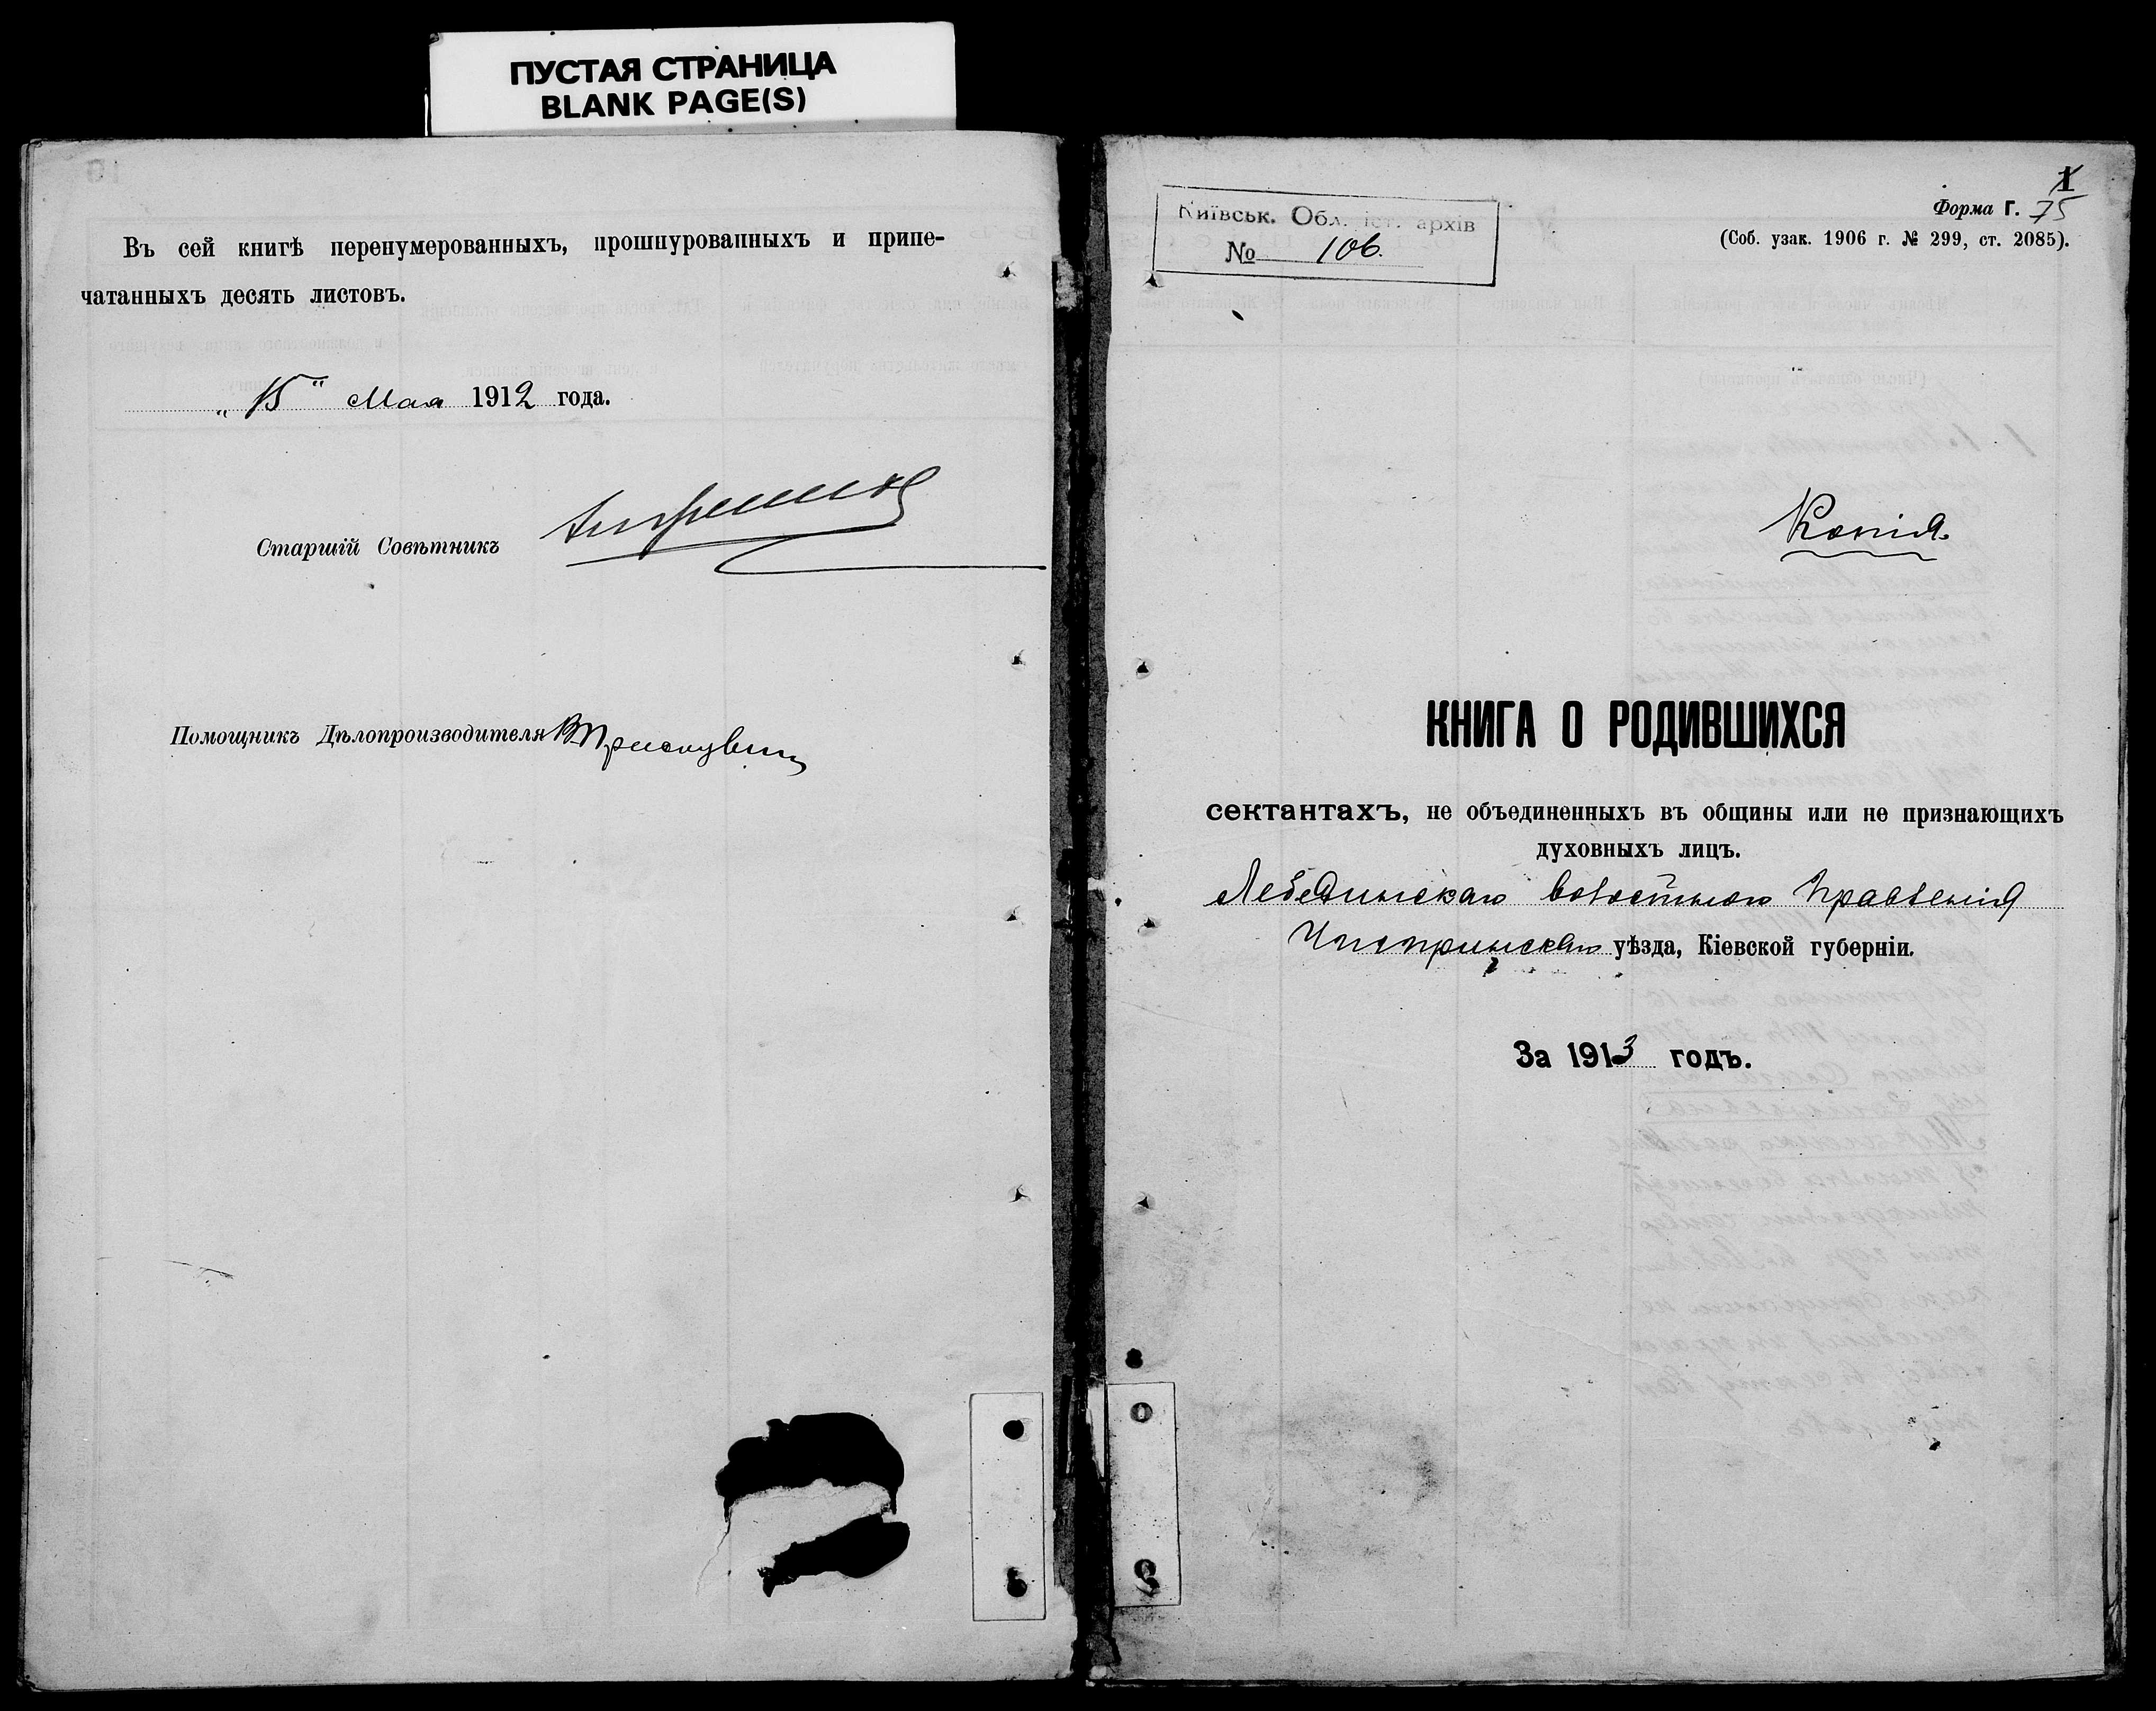 ПУСТАЯ СТРАНИЦА
BLANK PAGE(S)
Въ сей книгѣ перенумерованныхъ, прошнурованныхъ и припе-
чатанныхъ десять листовъ.
„ 15 " Мая 1912 года.
Старшій Совѣтникъ
Помощникъ Дѣлопроизводителя
1
Форма Г. 75
(Соб. узак. 1906 г. № 299, ст. 2085).
Київськ. Обл. іст. архів
№ 106.
Копія.
КНИГА О РОДИВШИХСЯ
сектантахъ, не объединенныхъ въ общины или не признающихъ
духовныхъ лицъ.
Лебединскаго волостного Правленія
Чигиринскаго уѣзда, Кіевской губерніи.
За 1913 годъ.